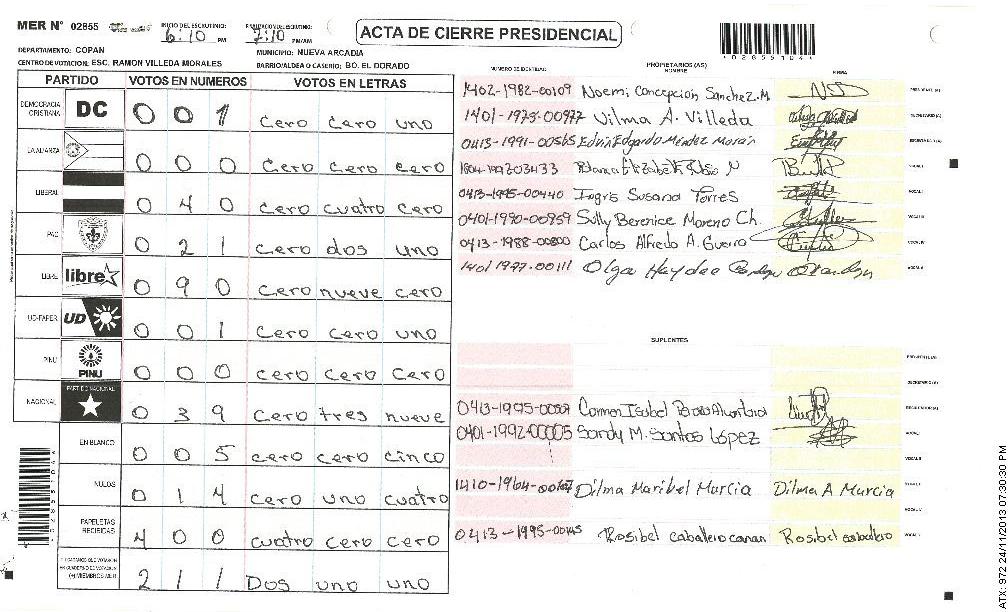 MER N° 02855
INICIO DEL ESCRUTINIO: 6:10 PM
7:10 PM/AM
ACTA DE CIERRE PRESIDENCIAL
DEPARTAMENTO: COPAN
MUNICIPIO: NUEVA ARCADIA
CENTRO DE VOTACION: ESC. RAMON VILLEDA MORALES
BARRIO/ALDEA O CASERIO: BO. EL DORADO
PARTIDO VOTOS EN NUMEROS VOTOS EN LETRAS
DEMOCRACIA CRISTIANA DC 0 0 1 cero cero uno
LA ALIANZA 0 0 0 cero cero cero
LIBERAL 0 4 0 cero cuatro cero
PAC 0 2 1 cero dos uno
LIBRE libre 0 9 0 cero nueve cero
UD-FAPER UD 0 0 1 cero cero uno
PINU PINU 0 0 0 cero cero cero
NACIONAL PARTIDO NACIONAL 0 3 9 cero tres nueve
EN BLANCO 0 0 5 cero cero cinco
NULOS 0 1 4 cero uno cuatro
PAPELETAS RECIBIDAS 4 0 0 cuatro cero cero
(+) MIEMBROS MER 2 1 1 Dos uno uno
NUMERO DE IDENTIDAD PROPIETARIOS (AS) NOMBRE FIRMA
1402-1982-00109 Noemi Concepcion Sanchez.M.
1401-1975-00977 Vilma A. Villeda
0413-1991-00565 Edvin Edgardo Méndez Morán
Blanca
0413-1995-00440 Ingris Susana Torres
0401-1990-00959 Sully Berenice Moreno Ch.
0413-1988-00800 Carlos Alfredo A. Guerra
1401 1977-00111 Olga Haydee
SUPLENTES
0413-1995- Carmen Isabel
0401-1992-00005 Sandy M. Santos López
1410-1964- Dilma Maribel Murcia Dilma A Murcia
0413-1995- Rosibel caballero Rosibel caballero
*02855104*
ATX: 972 24/11/2013 07:30:30 PM